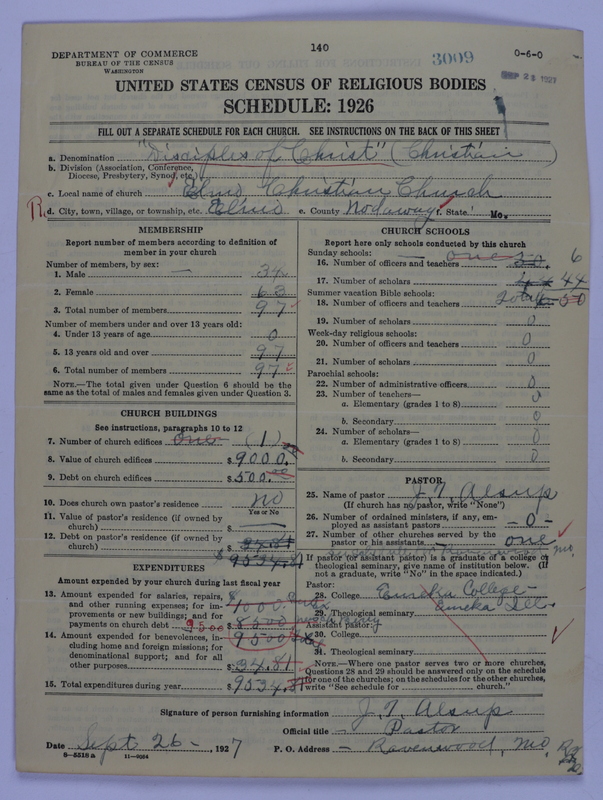 140
3009
0-6-0
SEP 28 1927
DEPARTMENT OF COMMERCE
BUREAU OF THE CENSUS
WASHINGTON
UNITED STATES CENSUS OF RELIGIOUS BODIES
SCHEDULE: 1926
FILL OUT A SEPARATE SCHEDULE FOR EACH CHURCH. SEE INSTRUCTIONS ON THE BACK OF THIS SHEET
a. Denomination "Disciples of Christ" (Christian
b. Division (Association, Conference,
Diocese, Presbytery, Synod, etc.)
c. Local name of church Elmo Christian Church
d. City, town, village, or township, etc. Elmo e. County Nodaway f. State Mo.
MEMBERSHIP
Report number of members according to definition of
member in your church
Number of members by sex:
1. Male 34
2. Female 63
3. Total number of members 97
Number of members under and over 13 years old:
4. Under 13 years of age 0
5. 13 years old and over 97
6. Total number of members 97
NOTE.—The total given under Question 6 should be
the same as the total of males and females given under Question 3.
CHURCH BUILDINGS
See instructions, paragraphs 10 to 12
7. Number of church edifices one (1)
8. Value of church edifices $9000.00
9. Debt on church edifices $500.00
10. Does church own pastor's residence no
Yes or No
11. Value of pastor's residence (if owned by
church) $
12. Debt on pastor's residence (if owned by
church) $
$9534.81
EXPENDITURES
Amount expended by your church during last fiscal year
13. Amount expended for salaries, repairs,
and other running expenses; for im-
provements or new buildings; and for
payments on church debt 9500 $8500
$1000.00
14. Amount expended for benevolences, in-
cluding home and foreign missions; for
denominational support; and for all
other purposes $34.81
9500
15. Total expenditures during year $9534.81
CHURCH SCHOOLS
Report here only schools conducted by this church
Sunday schools:
16. Number of officers and teachers 6
17. Number of scholars 44
Summer vacation Bible schools:
18. Number of officers and teachers
Total 50
19. Number of scholars 0
Week-day religious schools:
20. Number of officers and teachers 0
21. Number of scholars 0
Parochial schools:
22. Number of administrative officers 0
23. Number of teachers—
a. Elementary (grades 1 to 8) 0
b. Secondary 0
24. Number of scholars—
a. Elementary (grades 1 to 8) 0
b. Secondary 0
PASTOR
25. Name of pastor J. T. Alsup
(If church has no pastor, write "None")
26. Number of ordained ministers, if any, em-
ployed as assistant pastors -0-
27. Number of other churches served by the
pastor or his assistants one
Ravenswood, Mo.
If pastor (or assistant pastor) is a graduate of a college or
theological seminary, give name of institution below. (If
not a graduate, write "No" in the space indicated.)
Pastor:
28. College Eureka College-
Eureka Ill.
29. Theological seminary
Assistant pastor:
30. College
31. Theological seminary
NOTE.—Where one pastor serves two or more churches,
Questions 28 and 29 should be answered only on the schedule
for one of the churches; on the schedules for the other churches,
write "See schedule for church."
Signature of person furnishing information J. T. Alsup
Official title Pastor
Date Sept 26 - 1927 P. O. Address - Ravenswood, Mo.
8-5518a 11-9054